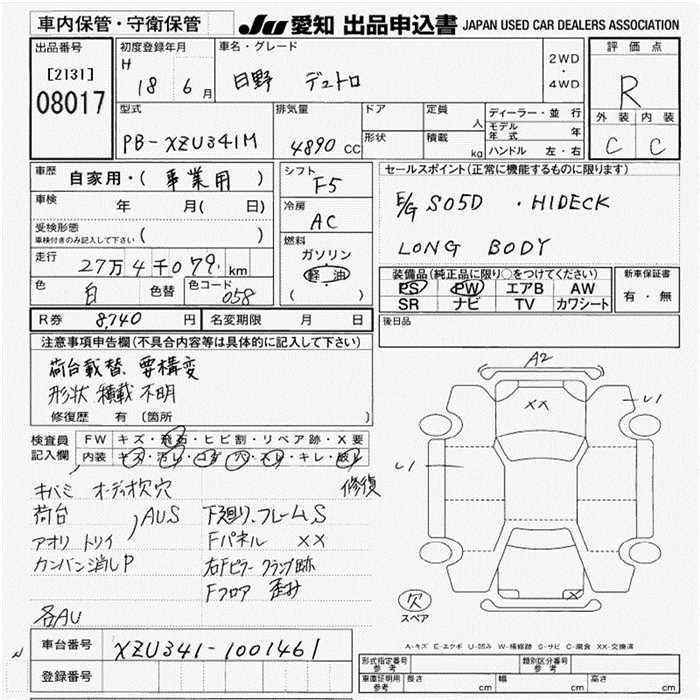 車内保管・守衛保管
JU 愛知 出品申込書 JAPAN USED CAR DEALERS ASSOCIATION
出品番号
[2131]
08017
初度登録年月
H 18 6 月
車名・グレード
日野 デュトロ
2WD
・
4WD
評価点
R
外装 内装
C C
型式
PB-XZU341M
排気量
4890 CC
ドア
形状
定員
人
積載
kg
ディーラー・並行
モデル年式 年
ハンドル 左・右
車歴 自家用・( 事業用 )
車検 年 月( 日)
受検形態
車検付きのみ記入して下さい ( )
走行 27万4千079 km
色 白 色替 色コード 058
シフト
F5
冷房
AC
燃料
ガソリン
軽油
( )
セールスポイント(正常に機能するものに限ります)
E/G S05D ・HIDECK
LONG BODY
装備品(純正品に限り○をつけてください)
PS PW エアB AW
SR ナビ TV カワシート
新車保証書
有・無
R券 8,740 円 名変期限 月 日
後日品
注意事項申告欄(不具合内容等は具体的に記入して下さい)
荷台載替、要構変
形状 積載 不明
修復歴 有 〔箇所 〕
検査員記入欄
FW キズ・飛石・ヒビ割・リペア跡・X要
内装 キズ・汚レ・コゲ・穴・スレ・キレ・破レ
キバミ オーディオ欠穴 修復
荷台 AUS 下廻り、フレームS
アオリ トリイ Fパネル XX
カンバン消しP 右Fピラー クランプ跡
Fフロア 歪み
各AU
A2
XX
U1
U1
X
欠
スペア
A-キズ E-エクボ U-凹み W-補修跡 S-サビ C-腐食 XX-交換済
N
車台番号 XZU341-1001461
登録番号
形式指定番号 参考
類別区分番号 参考
車庫証明 参考 長さ cm 幅 cm 高さ cm